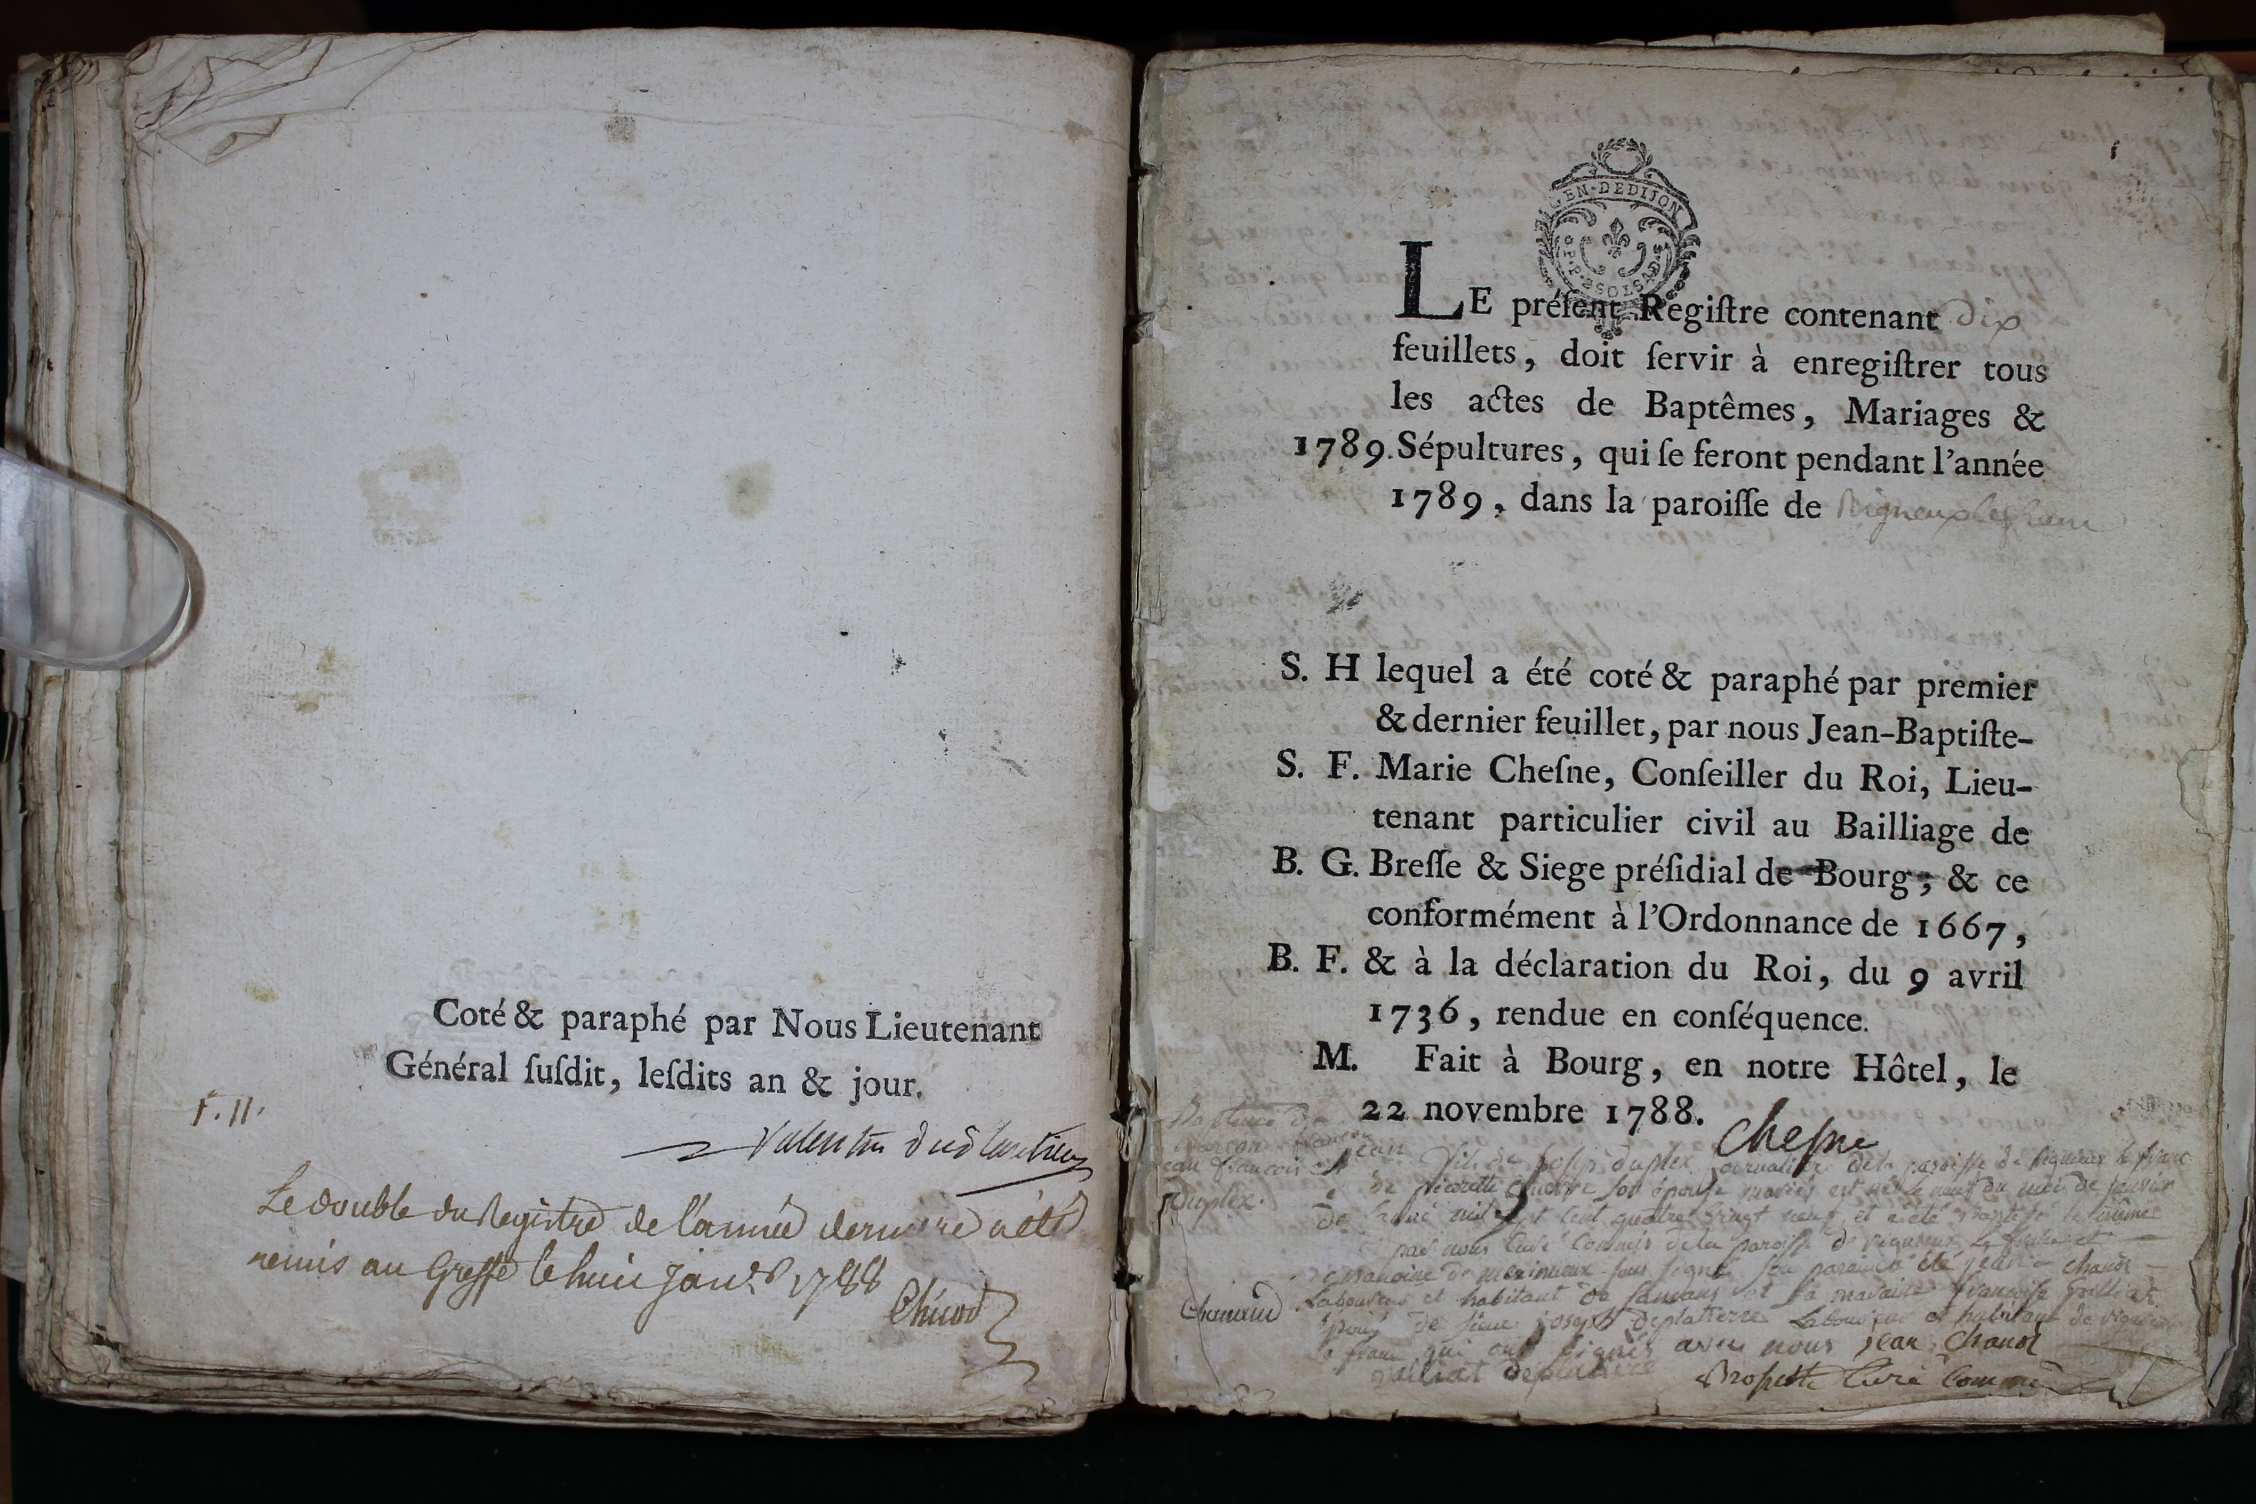 Coté & paraphé par Nous Lieutenant
Général ſuſdit, leſdits an & jour.
F. 11.
Valentin
Le double du Registre de l'année derniere a été
remis au Greffe le huit janv. 1788
Chicod
GEN·DEDIJON
1
LE préſent Regiſtre contenant dix
feuillets, doit ſervir à enregiſtrer tous
les actes de Baptêmes, Mariages &
1789. Sépultures, qui ſe feront pendant l'année
1789, dans la paroiſſe de Rigneux le franc
S. H lequel a été coté & paraphé par premier
& dernier feuillet, par nous Jean-Baptiſte-
S. F. Marie Cheſne, Conſeiller du Roi, Lieu-
tenant particulier civil au Bailliage de
B. G. Breſſe & Siege préſidial de Bourg; & ce
conformément à l'Ordonnance de 1667,
B. F. & à la déclaration du Roi, du 9 avril
1736, rendue en conſéquence.
M. Fait à Bourg, en notre Hôtel, le
22 novembre 1788.
Chesne
Jean françois
Duplex.
Jean françois fils de joseph duplex journalier de la paroisse de Rigneux le franc
de son épouse mariés est né le neuf du mois de janvier
de l'année mil sept cent quatre vingt neuf et a été baptisé le même
par nous Curé Commis de la paroisse de rigneux le franc et
de meximieux sous signé son parain a été jean chanel
Chanand
Laboureur et habitant de samans et la maraine françoise Guilliat
de sieur joseph deplatierre Laboureur et habitant de rigneux
le franc qui ont signés avec nous jean Chanel
guilliat deplatière
Curé Commis